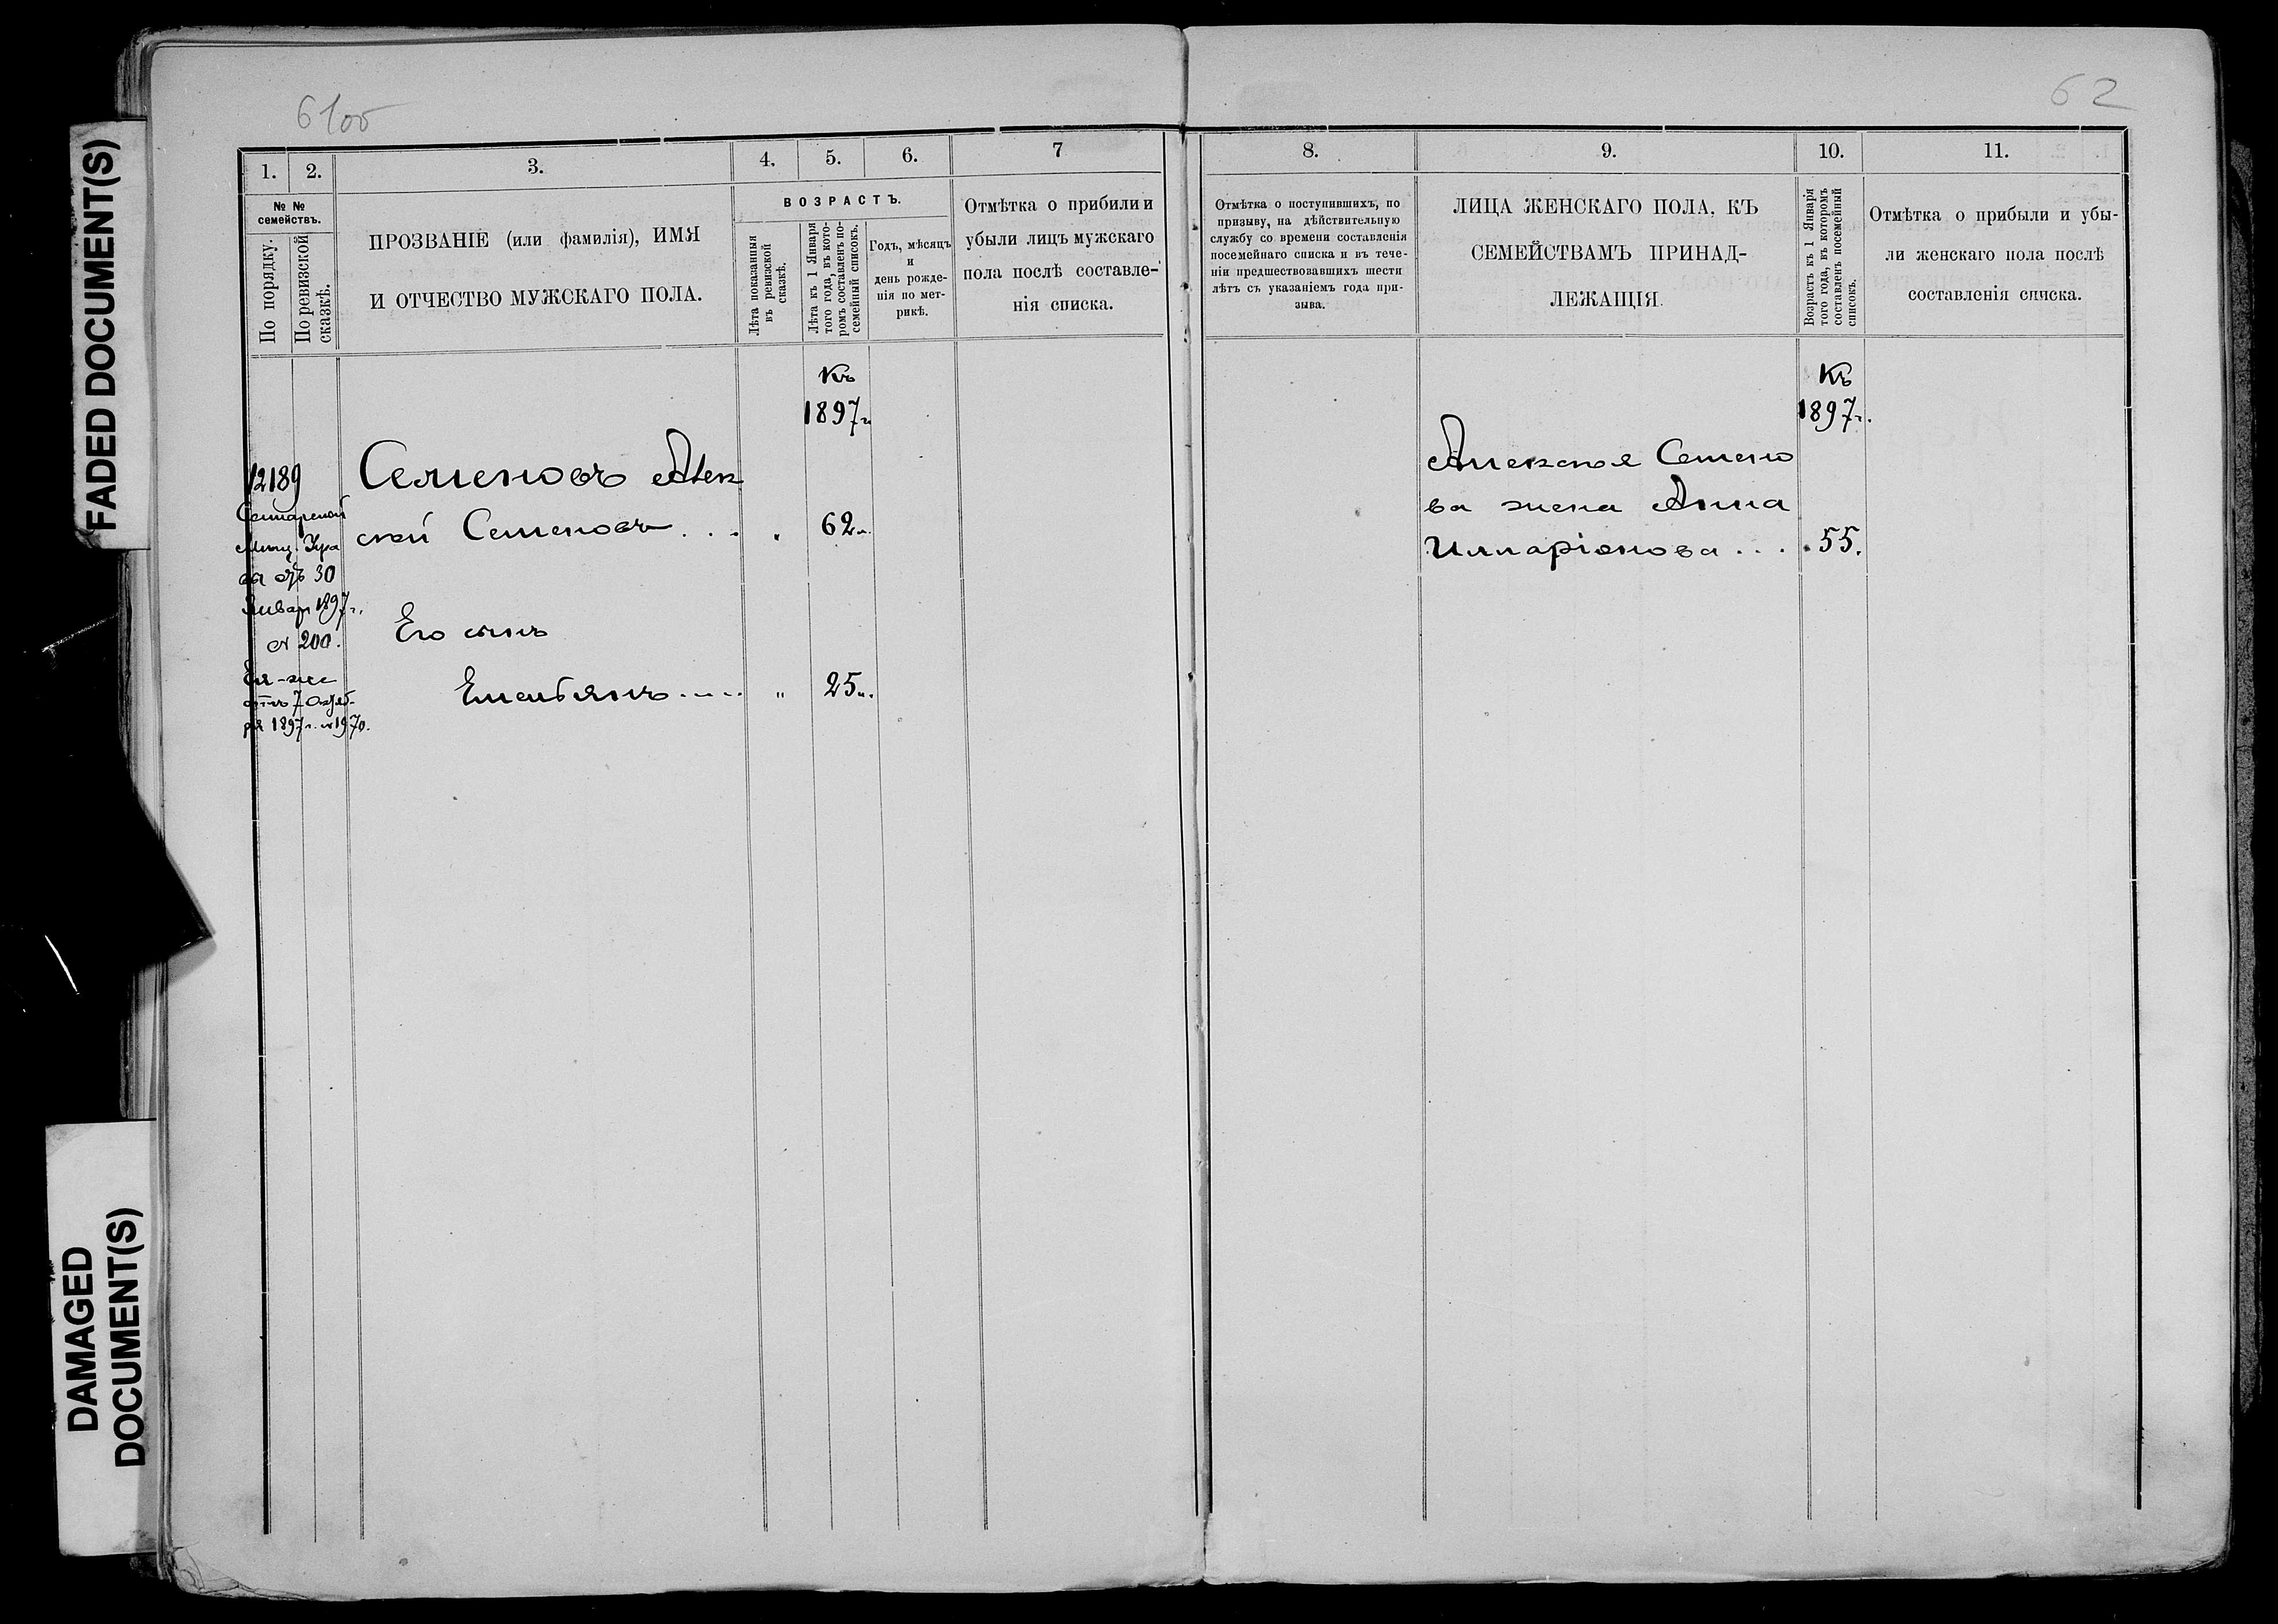 61об
62
1.
2.
3.
4.
5.
6.
7
8.
9.
10.
11.
№ №
семействъ.
По порядку.
По ревизской
сказкѣ.
ПРОЗВАНІЕ (или фамилія), ИМЯ
И ОТЧЕСТВО МУЖСКАГО ПОЛА.
ВОЗРАСТЪ.
Лѣта показанныя
въ ревизской
сказкѣ.
Лѣта къ 1 Января
того года, въ кото-
ромъ составленъ по-
семейный списокъ.
Годъ, мѣсяцъ
и
день рожде-
нія по мет-
рикѣ.
Отмѣтка о прибыли и
убыли лицъ мужскаго
пола послѣ составле-
нія списка.
Отмѣтка о поступившихъ, по
призыву, на дѣйствительную
службу со времени составленія
посемейнаго списка и въ тече-
ніи предшествовавшихъ шести
лѣтъ съ указаніемъ года при-
зыва.
ЛИЦА ЖЕНСКАГО ПОЛА, КЪ
СЕМЕЙСТВАМЪ ПРИНАД-
ЛЕЖАЩІЯ.
Возрастъ къ 1 Января
того года, въ которомъ
составленъ посемейный
списокъ.
Отмѣтка о прибыли и убы-
ли женскаго пола послѣ
составленія списка.
Къ
1897г.
12189
Самарской
Мѣщ. Упра
ва отъ 30
Январ 1897г.
№ 200.
Ея-же
отъ 7 Октяб-
ря 1897г. № 1970.
Семеновъ Алек
сѣй Семеновъ . . . 62.
Его сынъ
Емельянъ . . . . " 25.
Къ
1897г.
Алексѣя Семено
ва жена Анна
Илларіонова . . . . 55.
FADED DOCUMENT(S)
DAMAGED
DOCUMENT(S)